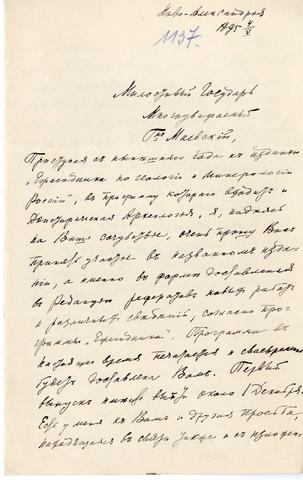 Ново-Александрия
1895
1137.
Милостивый Государь
Многоуважаемый
Гнъ Маевскій,
Приступая съ нынѣшняго года къ изданію
„Ежегодника по Геологіи и Минералогіи
Россіи", въ программу котораго входитъ и
доисторическая Археологія, я, надѣясь
на Ваше сочувствіе, очень прошу Васъ
принять участіе въ названномъ изда-
ніи, а именно въ формѣ доставленія
въ Редакцію рефератовъ новыхъ работъ
и различныхъ свѣдѣній, согласно про-
граммы „Ежегодника". Программа въ
настоящее время печатается и своевременно
будетъ доставлена Вамъ. Первый
выпускъ выйдетъ около 1 Декабря.
Есть у меня къ Вамъ и другая просьба,
находящаяся въ связи также и съ